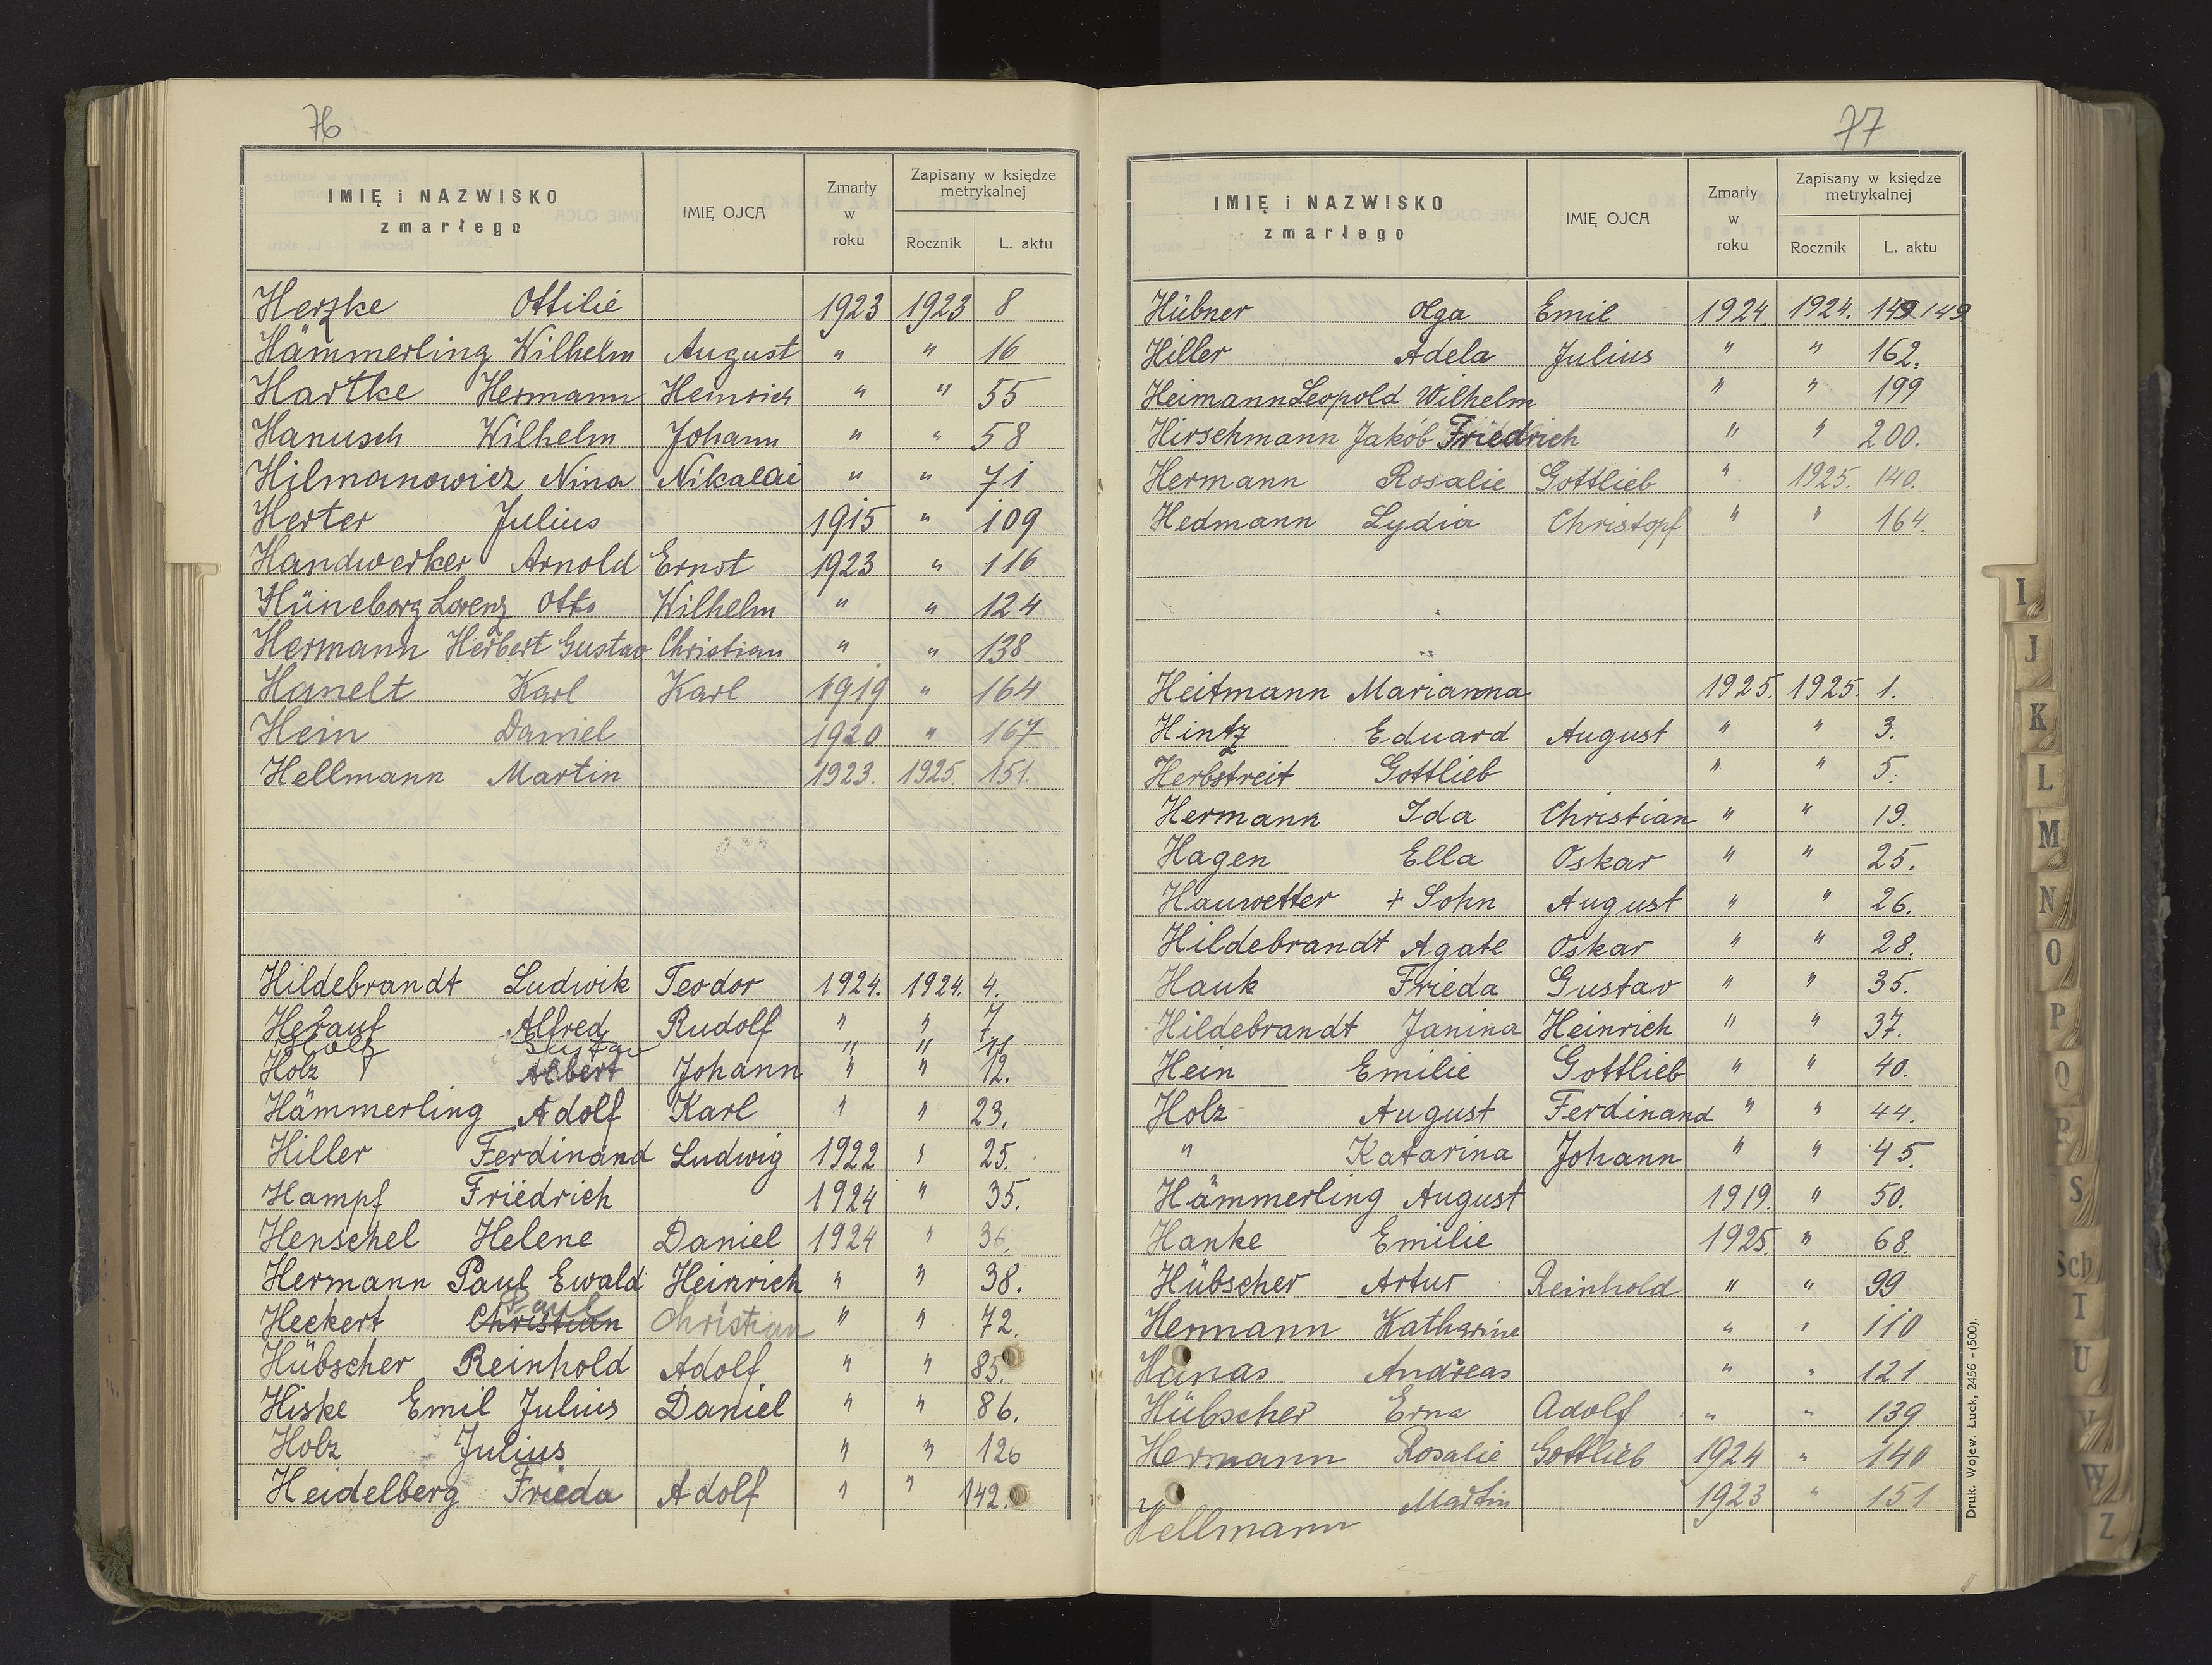 76
IMIĘ i NAZWISKO zmarłego IMIĘ OJCA Zmarły w roku Zapisany w księdze metrykalnej Rocznik L. aktu
Herzke Ottilie 1923 1923 8
Hämmerling Wilhelm August " " 16
Hartke Hermann Heinrich " " 55
Hanusch Wilhelm Johann " " 58
Hilmanowicz Nina Nikalai " " 71
Herter Julius 1915 " 109
Handwerker Arnold Ernst 1923 " 116
Hüneborg Lorenz Otto Wilhelm " " 124
Hermann Herbert Gustav Christian " " 138
Hanelt Karl Karl 1919 " 164
Hein Daniel 1920 " 167
Hellmann Martin 1923. 1925. 151.
Hildebrandt Ludwik Teodor 1924. 1924. 4.
Herauf Alfred Rudolf " " 7
Holz Gustav " " 11
Holz Albert Johann " " 12.
Hämmerling Adolf Karl " " 23.
Hiller Ferdinand Ludwig 1922 " 25.
Hampf Friedrich 1924 " 35.
Henschel Helene Daniel 1924 " 36.
Hermann Paul Ewald Heinrich " " 38.
Paul
Heckert Christian Christian " " 72.
Hübscher Reinhold Adolf " " 85.
Hiske Emil Julius Daniel " " 86.
Holz Julius " " 126
Heidelberg Frieda Adolf " " 142.
77
IMIĘ i NAZWISKO zmarłego IMIĘ OJCA Zmarły w roku Zapisany w księdze metrykalnej Rocznik L. aktu
Hübner Olga Emil 1924. 1924. 149. 149
Hiller Adela Julius " " 162.
Heimann Leopold Wilhelm " " 199
Hirschmann Jakób Friedrich " " 200.
Hermann Rosalie Gottlieb " 1925. 140.
Hedmann Lydia Christopf " " 164.
Heitmann Marianna 1925. 1925. 1.
Hintz Eduard August " " 3.
Herbstreit Gottlieb " " 5.
Hermann Ida Christian " " 19.
Hagen Ella Oskar " " 25.
Hauwetter + Sohn August " " 26.
Hildebrandt Agate Oskar " " 28.
Hauk Frieda Gustav " " 35.
Hildebrandt Janina Heinrich " " 37.
Hein Emilie Gottlieb " " 40.
Holz August Ferdinand " " 44.
" Katarina Johann " " 45.
Hämmerling August 1919. " 50.
Hanke Emilie 1925. " 68.
Hübscher Artur Reinhold " " 99
Hermann Katharine " " 110
Hanas Andreas " " 121
Hübscher Erna Adolf " " 139
Hermann Rosalie Gottlieb 1924 " 140
Hellmann Martin 1923 " 151
Druk. Wojew. Łuck, 2456 - (500).
I
J
K
L
M
N
O
P
Q
R
S
Sch
T
U
V
W
Z